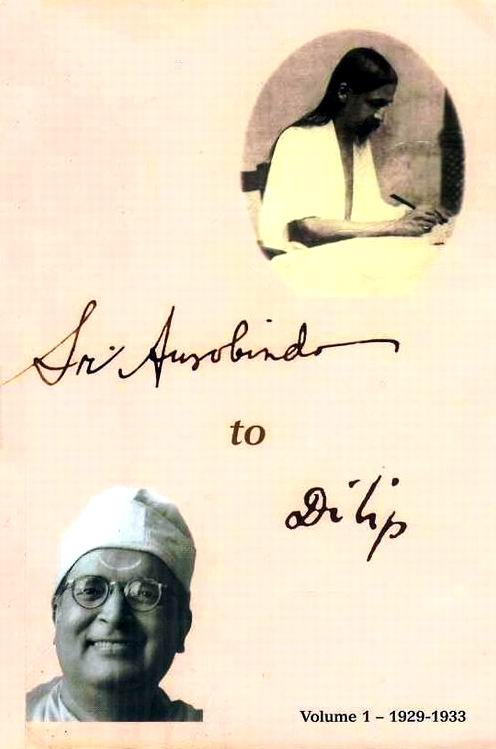 Sri Aurobindo
to
Dilip
Volume 1 – 1929-1933